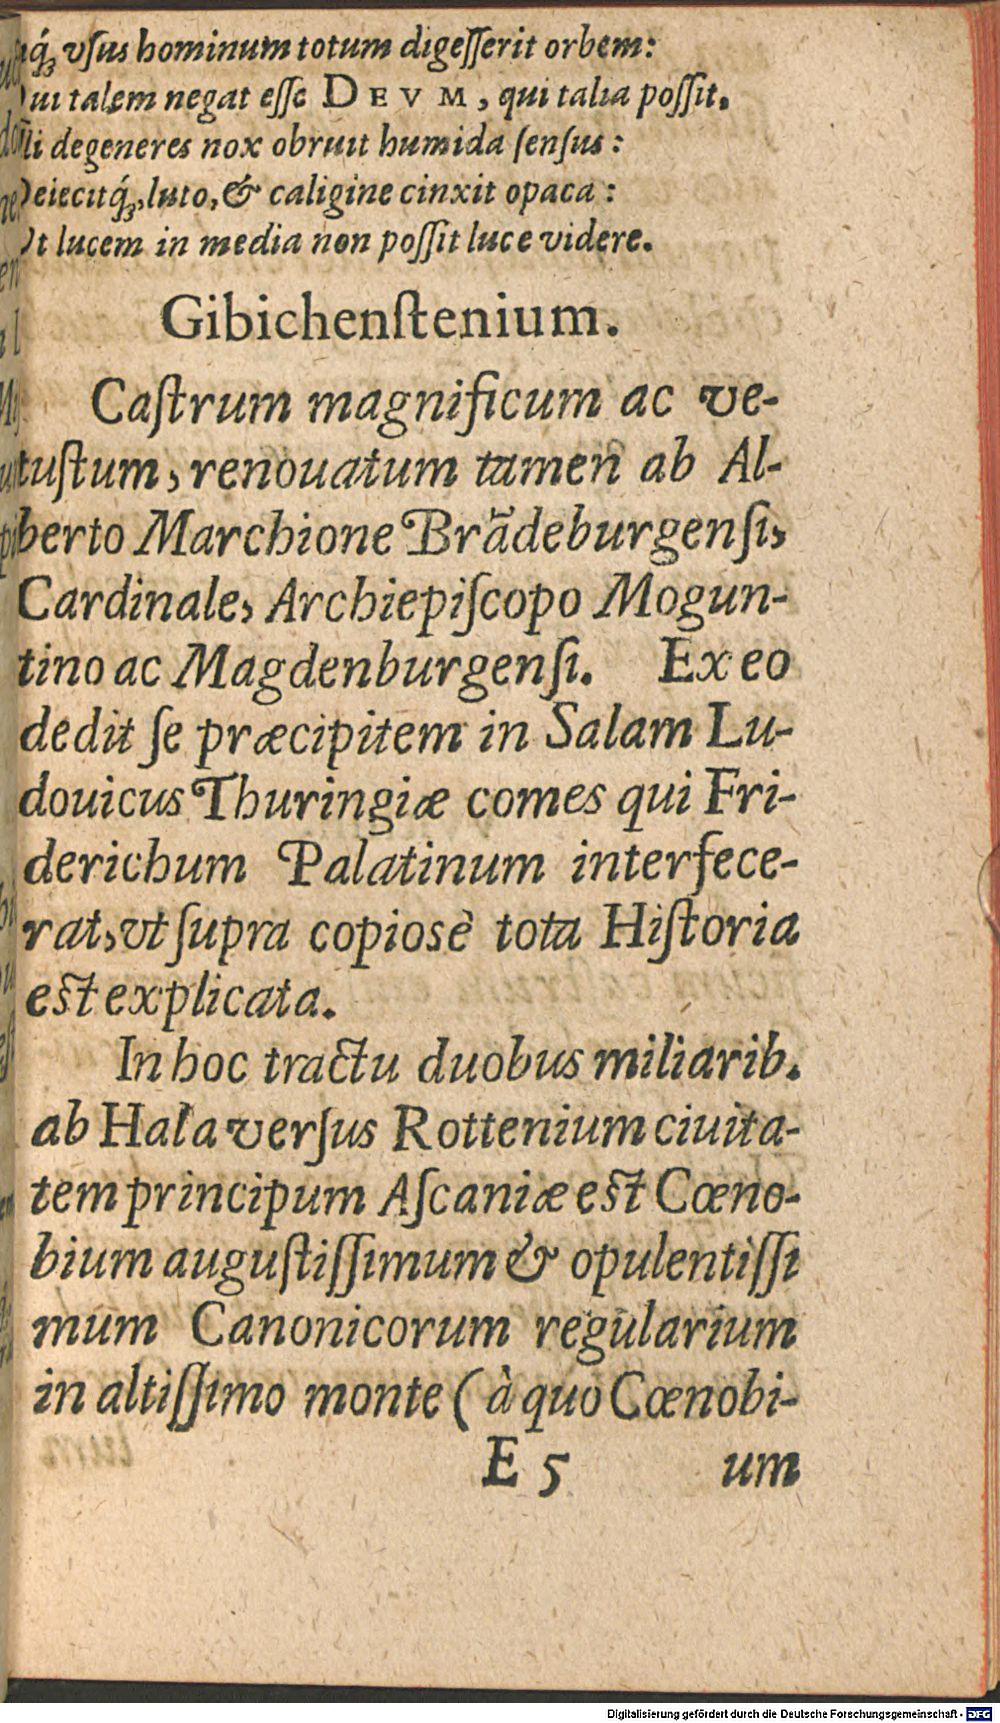 q́ꝫ vſus hominum totum digeſſerit orbem:
talem negat eſſe DEVM, qui talia poſſit.
degeneres nox obruit humida ſenſus:
eiecitq́ꝫ, luto, & caligine cinxit opaca:
t lucem in media non poſſit luce videre.
Gibichenſtenium.
Caſtrum magnificum ac ve-
tuſtum, renouatum tamen ab Al-
berto Marchione Brãdeburgenſi,
Cardinale, Archiepiſcopo Mogun-
tino ac Magdenburgenſi. Ex eo
dedit ſe præcipitem in Salam Lu-
douicus Thuringiæ comes qui Fri-
derichum Palatinum interfece-
rat, vt ſupra copiosè tota Hiſtoria
eſt explicata.
In hoc tractu duobus miliarib.
ab Hala verſus Rottenium ciuita-
tem principum Aſcaniæ eſt Cœno-
bium auguſtiſſimum & opulentiſſi
mum Canonicorum regularium
in altiſſimo monte (à quo Cœnobi-
E 5 um
Digitalisierung gefördert durch die Deutsche Forschungsgemeinschaft - DFG